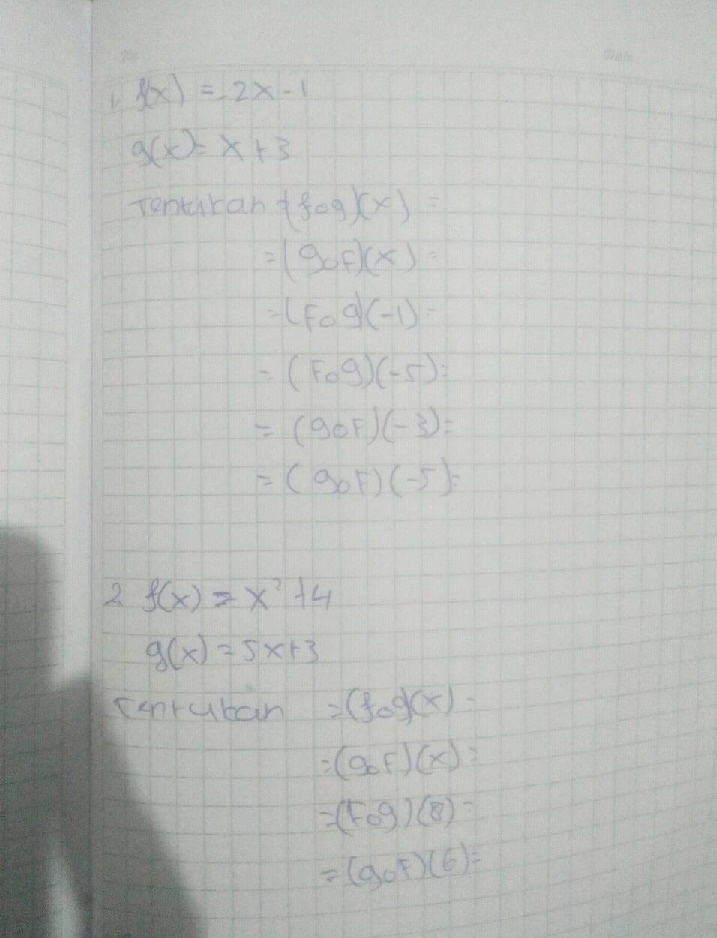 1. f(x) = 2x-1
g(x) = x+3
Tentukan (fog)(x) =
= (goF)(x) =
= (Fog)(-1) =
= (Fog)(-5) =
= (goF)(-3) =
= (goF)(-5) =
2 f(x) = x² +4
g(x) = 5x+3
Tentukan = (fog)(x) =
= (goF)(x) =
= (Fog)(8) =
= (goF)(6) =